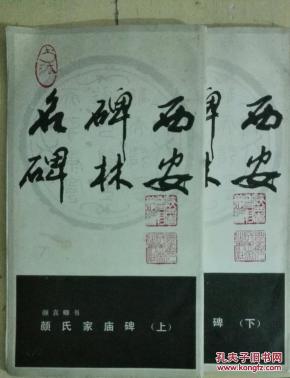 西安
碑林
名碑
颜真卿书
颜氏家庙碑（上）
西安
碑
林
碑（下）
孔夫子旧书网